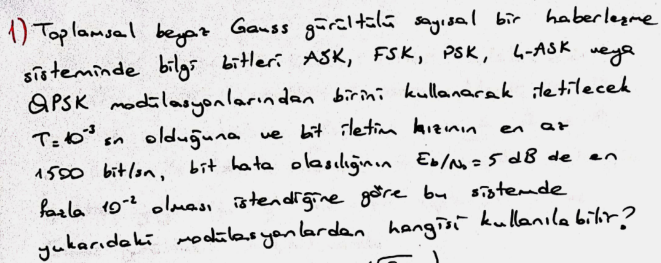 1) Toplamsal beyaz Gauss gürültülü sayısal bir haberleşme
sisteminde bilgi bitleri ASK, FSK, PSK, 4-ASK veya
QPSK modülasyonlarından birini kullanarak iletilecek
T=10⁻³ sn olduğuna ve bit iletim hızının en az
1500 bit/sn, bit hata olasılığının Eb/N₀ = 5 dB de en
fazla 10⁻² olması istendiğine göre bu sistemde
yukarıdaki modülasyonlardan hangisi kullanılabilir?